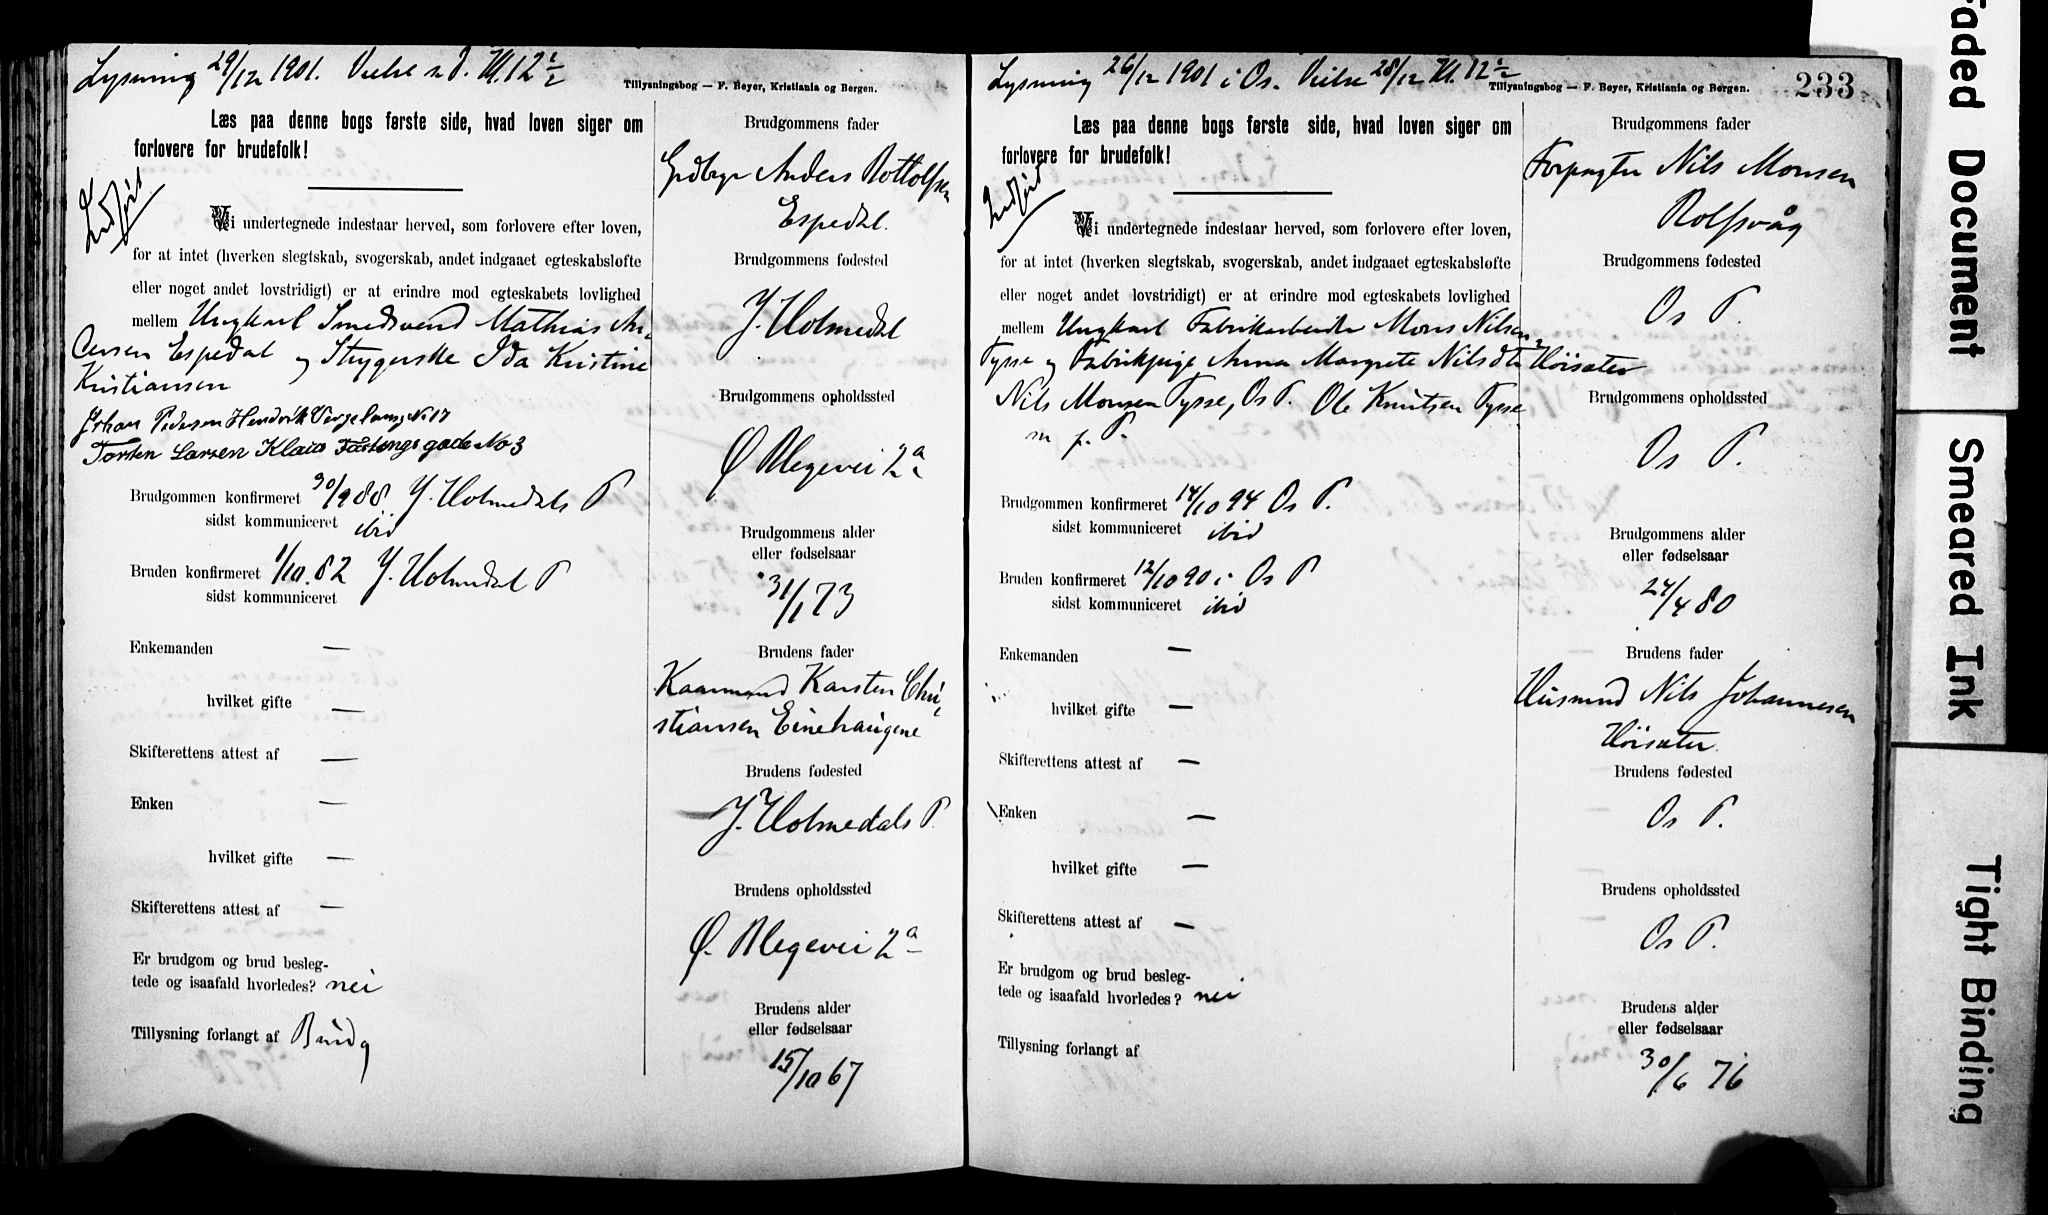 Lysning 29/12 1901. Vielse s. d. Kl. 12 1/2
Tillysningsbog — F. Beyer, Kristiania og Bergen.
Læs paa denne bogs første side, hvad loven siger om
forlovere for brudefolk!
Indført
Vi undertegnede indestaar herved, som forlovere efter loven,
for at intet (hverken slegtskab, svogerskab, andet indgaaet egteskabsløfte
eller noget andet lovstridigt) er at erindre mod egteskabets lovlighed
mellem Ungkarl Smedsvend Mathias An-
dersen Espedal og Strygerske Ida Kristine
Kristiansen
Johan Pedersen Hendrik Vergelansg No 17
Torsten Larsen Klaus Fastings gade No 3
Brudgommen konfirmeret 30/9 88 Y. Holmedals P
sidst kommuniceret ibid
Bruden konfirmeret 1/10. 82 Y. Holmedal P
sidst kommuniceret
Enkemanden —
hvilket gifte —
Skifterettens attest af —
Enken —
hvilket gifte —
Skifterettens attest af —
Er brudgom og brud besleg-
tede og isaafald hvorledes? nei
Tillysning forlangt af Brudg
Brudgommens fader
Grdbrgr Anders Rottolfsen
Espedal.
Brudgommens fødested
Y. Holmedal
Brudgommens opholdssted
Ø Blegevei 2a
Brudgommens alder
eller fødselsaar
31/1 73
Brudens fader
Kaarmand Karsten Chri-
stiansen Einehaugene
Brudens fødested
Y. Holmedals P.
Brudens opholdssted
Ø. Blegevei 2a
Brudens alder
eller fødselsaar
15/10 67
Lysning 26/12 1901 i Os. Vielse 28/12 Kl. 12 1/2
Tillysningsbog — F. Beyer, Kristiania og Bergen.
233
Læs paa denne bogs første side, hvad loven siger om
forlovere for brudefolk!
Indført
Vi undertegnede indestaar herved, som forlovere efter loven,
for at intet (hverken slegtskab, svogerskab, andet indgaaet egteskabsløfte
eller noget andet lovstridigt) er at erindre mod egteskabets lovlighed
mellem Ungkarl Fabrikarbeider Mons Nilsen
Tysse og Fabrikpige Anna Margrete Nilsdtr Höisæter
Nils Monsen Tysse, Os P. Ole Knutsen Tysse
s. P.
Brudgommen konfirmeret 14/10 94 Os P.
sidst kommuniceret ibid
Bruden konfirmeret 12/10 90 i Os P
sidst kommuniceret ibid
Enkemanden —
hvilket gifte —
Skifterettens attest af —
Enken —
hvilket gifte —
Skifterettens attest af —
Er brudgom og brud besleg-
tede og isaafald hvorledes? nei
Tillysning forlangt af
Brudgommens fader
Forpagter Nils Monsen
Rolfsvåg
Brudgommens fødested
Os P.
Brudgommens opholdssted
Os P.
Brudgommens alder
eller fødselsaar
24/4 80
Brudens fader
Husmand Nils Johannesen
Höisæter.
Brudens fødested
Os P.
Brudens opholdssted
Os P.
Brudens alder
eller fødselsaar
30/6 76
Faded Document
Smeared Ink
Tight Binding